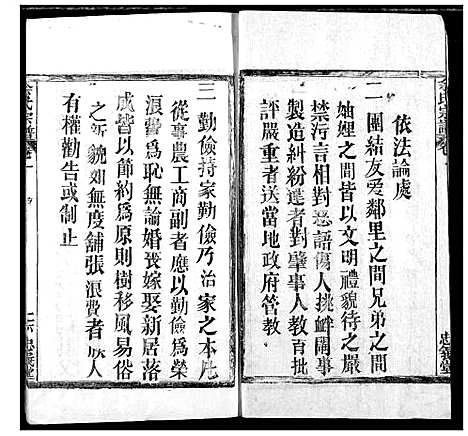 依法論處
二 團結友爱鄰里之間兄弟之間
妯娌之間皆以文明禮貌待之嚴
禁污言相對惡語傷人挑衅鬧事
製造糾紛違者對肇事人教育批
評嚴重者送當地政府管教
三 勤儉持家勤儉乃治家之本凡
從事農工商副者應以勤儉爲榮
浪費爲恥無論婚喪嫁娶新居落
成皆以節約爲原則樹移風易俗
之新貌如無度舖張浪費者族人
有權勸告或制止